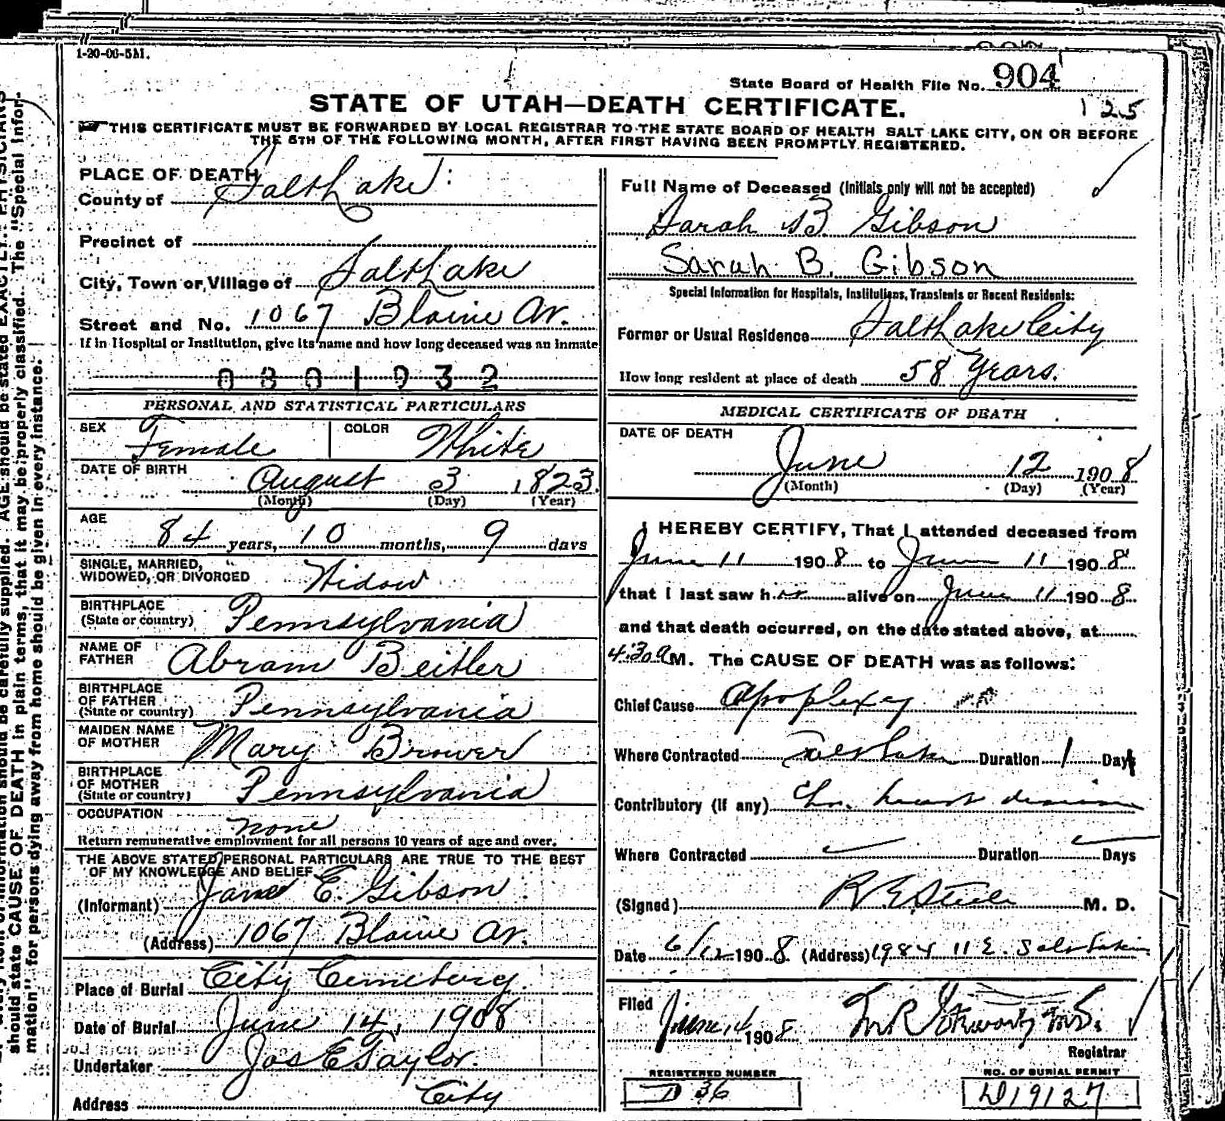 1-20-06-5M.
State Board of Health File No. 904
125
STATE OF UTAH—DEATH CERTIFICATE.
THIS CERTIFICATE MUST BE FORWARDED BY LOCAL REGISTRAR TO THE STATE BOARD OF HEALTH SALT LAKE CITY, ON OR BEFORE
THE 5TH OF THE FOLLOWING MONTH, AFTER FIRST HAVING BEEN PROMPTLY REGISTERED.
PLACE OF DEATH
County of Salt Lake
Precinct of
City, Town or Village of Salt Lake
Street and No. 1067 Blaine Av.
If in Hospital or Institution, give its name and how long deceased was an inmate
0801932
PERSONAL AND STATISTICAL PARTICULARS
SEX Female COLOR White
DATE OF BIRTH August 3 1823.
(Month) (Day) (Year)
AGE
84 years, 10 months, 9 days
SINGLE, MARRIED,
WIDOWED, OR DIVORCED Widow
BIRTHPLACE
(State or country) Pennsylvania
NAME OF
FATHER Abram Beitler
BIRTHPLACE
OF FATHER
(State or country) Pennsylvania
MAIDEN NAME
OF MOTHER Mary Brower
BIRTHPLACE
OF MOTHER
(State or country) Pennsylvania
OCCUPATION none
Return remunerative employment for all persons 10 years of age and over.
THE ABOVE STATED PERSONAL PARTICULARS ARE TRUE TO THE BEST
OF MY KNOWLEDGE AND BELIEF
(Informant) Jane E. Gibson
(Address) 1067 Blaine Av.
Place of Burial City Cemetery.
Date of Burial June 14, 1908
Undertaker Jos E Taylor.
Address City
Full Name of Deceased (Initials only will not be accepted)
Sarah B Gibson
Sarah B. Gibson
Special Information for Hospitals, Institutions, Transients or Recent Residents:
Former or Usual Residence Salt Lake City
How long resident at place of death 58 Years.
MEDICAL CERTIFICATE OF DEATH
DATE OF DEATH
June 12 1908
(Month) (Day) (Year)
I HEREBY CERTIFY, That I attended deceased from
June 11 1908 to June 11 1908
that I last saw her alive on June 11 1908
and that death occurred, on the date stated above, at
4:30 a M. The CAUSE OF DEATH was as follows:
Chief Cause Apoplexy
Where Contracted Salt Lake Duration 1 Days
Contributory (if any) Chr. heart disease
Where Contracted Duration Days
(Signed) R E Steele M. D.
Date 6/12 1908 (Address) 1984 11 E. Salt Lake
Filed June 14 1908
Registrar
REGISTERED NUMBER
D 36
NO. OF BURIAL PERMIT
D19127
AGE should be stated EXACTLY. PHYSICIANS
should state CAUSE OF DEATH in plain terms, that it may be properly classified. The "Special Infor-
mation" for persons dying away from home should be given in every instance.